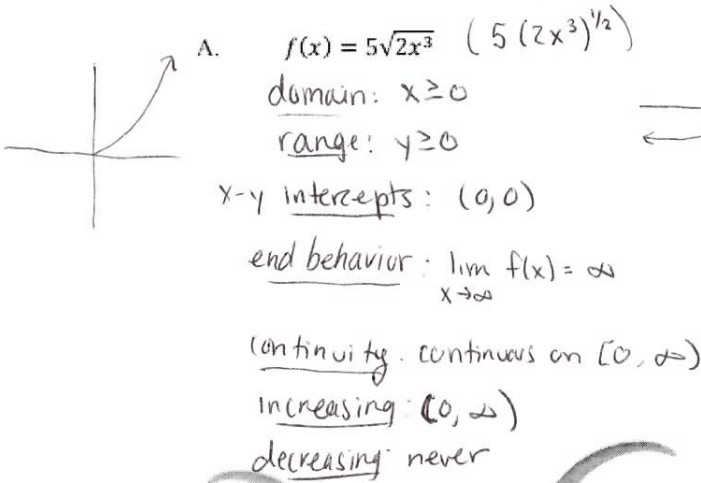 A. f(x) = 5√2x³ (5(2x³)^1/2)
domain: x≥0
range: y≥0
x-y intercepts: (0,0)
end behavior: lim f(x) = ∞
x→∞
continuity. continuous on [0, ∞)
increasing: (0, ∞)
decreasing never